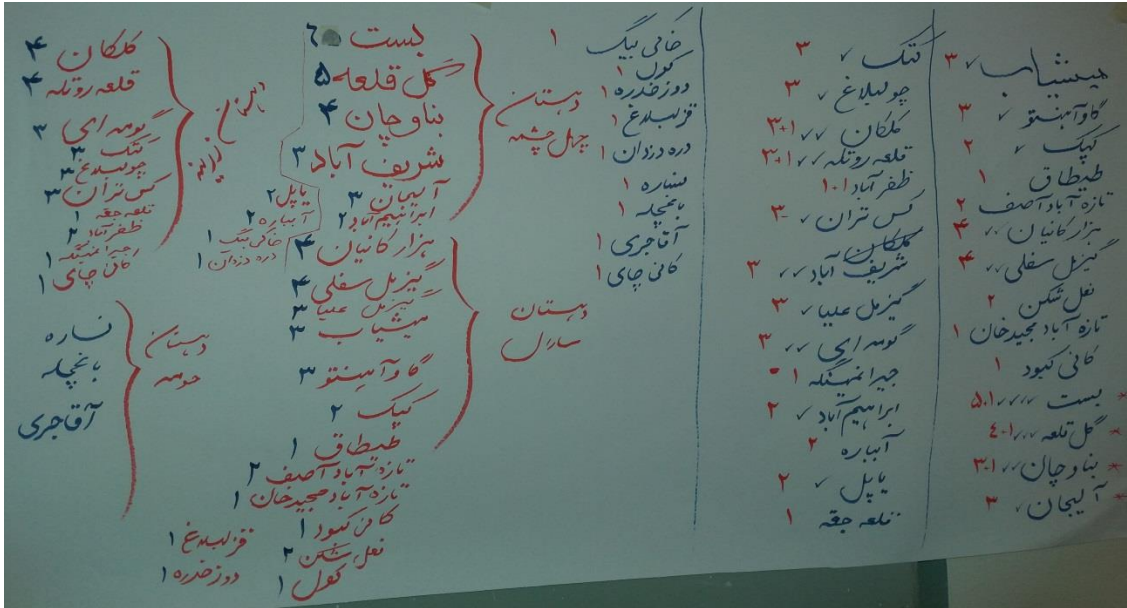 میشیاب ✓ ۳
گاوآهنتو ✓ ۳
کپک ✓ ۲
طیطاق ۱
تازه آباد آصف ۲
هزارکانیان ✓✓ ۴
گیزمل سفلی ✓✓ ۴
نعل شکن ۲
تازه آباد مجیدخان ۱
کانی کبود ۱
* بست ✓✓✓✓ ۵،۱
* گل قلعه ✓✓✓ ۴۰۱
* بناوچان ✓✓ ۳۰۱
* آلیجان ✓ ۳
کتک ✓ ۳
چوملبلاغ ✓ ۳
کلکان ✓✓ ۳+۱
قلعه روتله ✓✓ ۳+۱
ظفرآباد ۱۰۱
کس نزان ✓ ۳
کلکان
شریف آباد ✓✓ ۳
گیزمل علیا ✓ ۳
گومه ای ✓✓ ۳
جیرانمنگه ۱
ابراهیم آباد ✓ ۲
آنباره ۲
پاپل ✓ ۲
قلعه جقه ۱
خاکی بیگ ۱
کول ۱
دوزخدره ۱
قزلبلاغ ۱
دره دزدان ۱
نساره ۱
بانچله ۱
آقاجری ۱
کانی چای ۱
دهستان
چهل چشمه
بست ۶
گل قلعه ۵
بناوچان ۴
شریف آباد ۳
آلیجان ۳
ابراهیم آباد ۲
پاپل ۲
آنباره ۲
خاکی بیگ ۱
دره دزدان ۱
دهستان
سارال
هزارکانیان ۴
گیزمل سفلی ۴
گیزمل علیا ۳
میشیاب ۳
گاوآهنتو ۳
کپک ۲
طیطاق ۱
تازه آباد آصف ۲
تازه آباد مجیدخان ۱
کانی کبود ۱
نعل شکن ۲
کول ۱
قزلبلاغ ۱
دوزخدره ۱
دهستان
کلکان ۴
قلعه روتله ۴
گومه ای ۳
کتک ۳
چوملبلاغ ۳
کس نزان ۳
قلعه جقه ۱
ظفرآباد ۲
جیرانمنگه ۱
کانی چای ۱
دهستان
حومه
نساره
بانچله
آقاجری